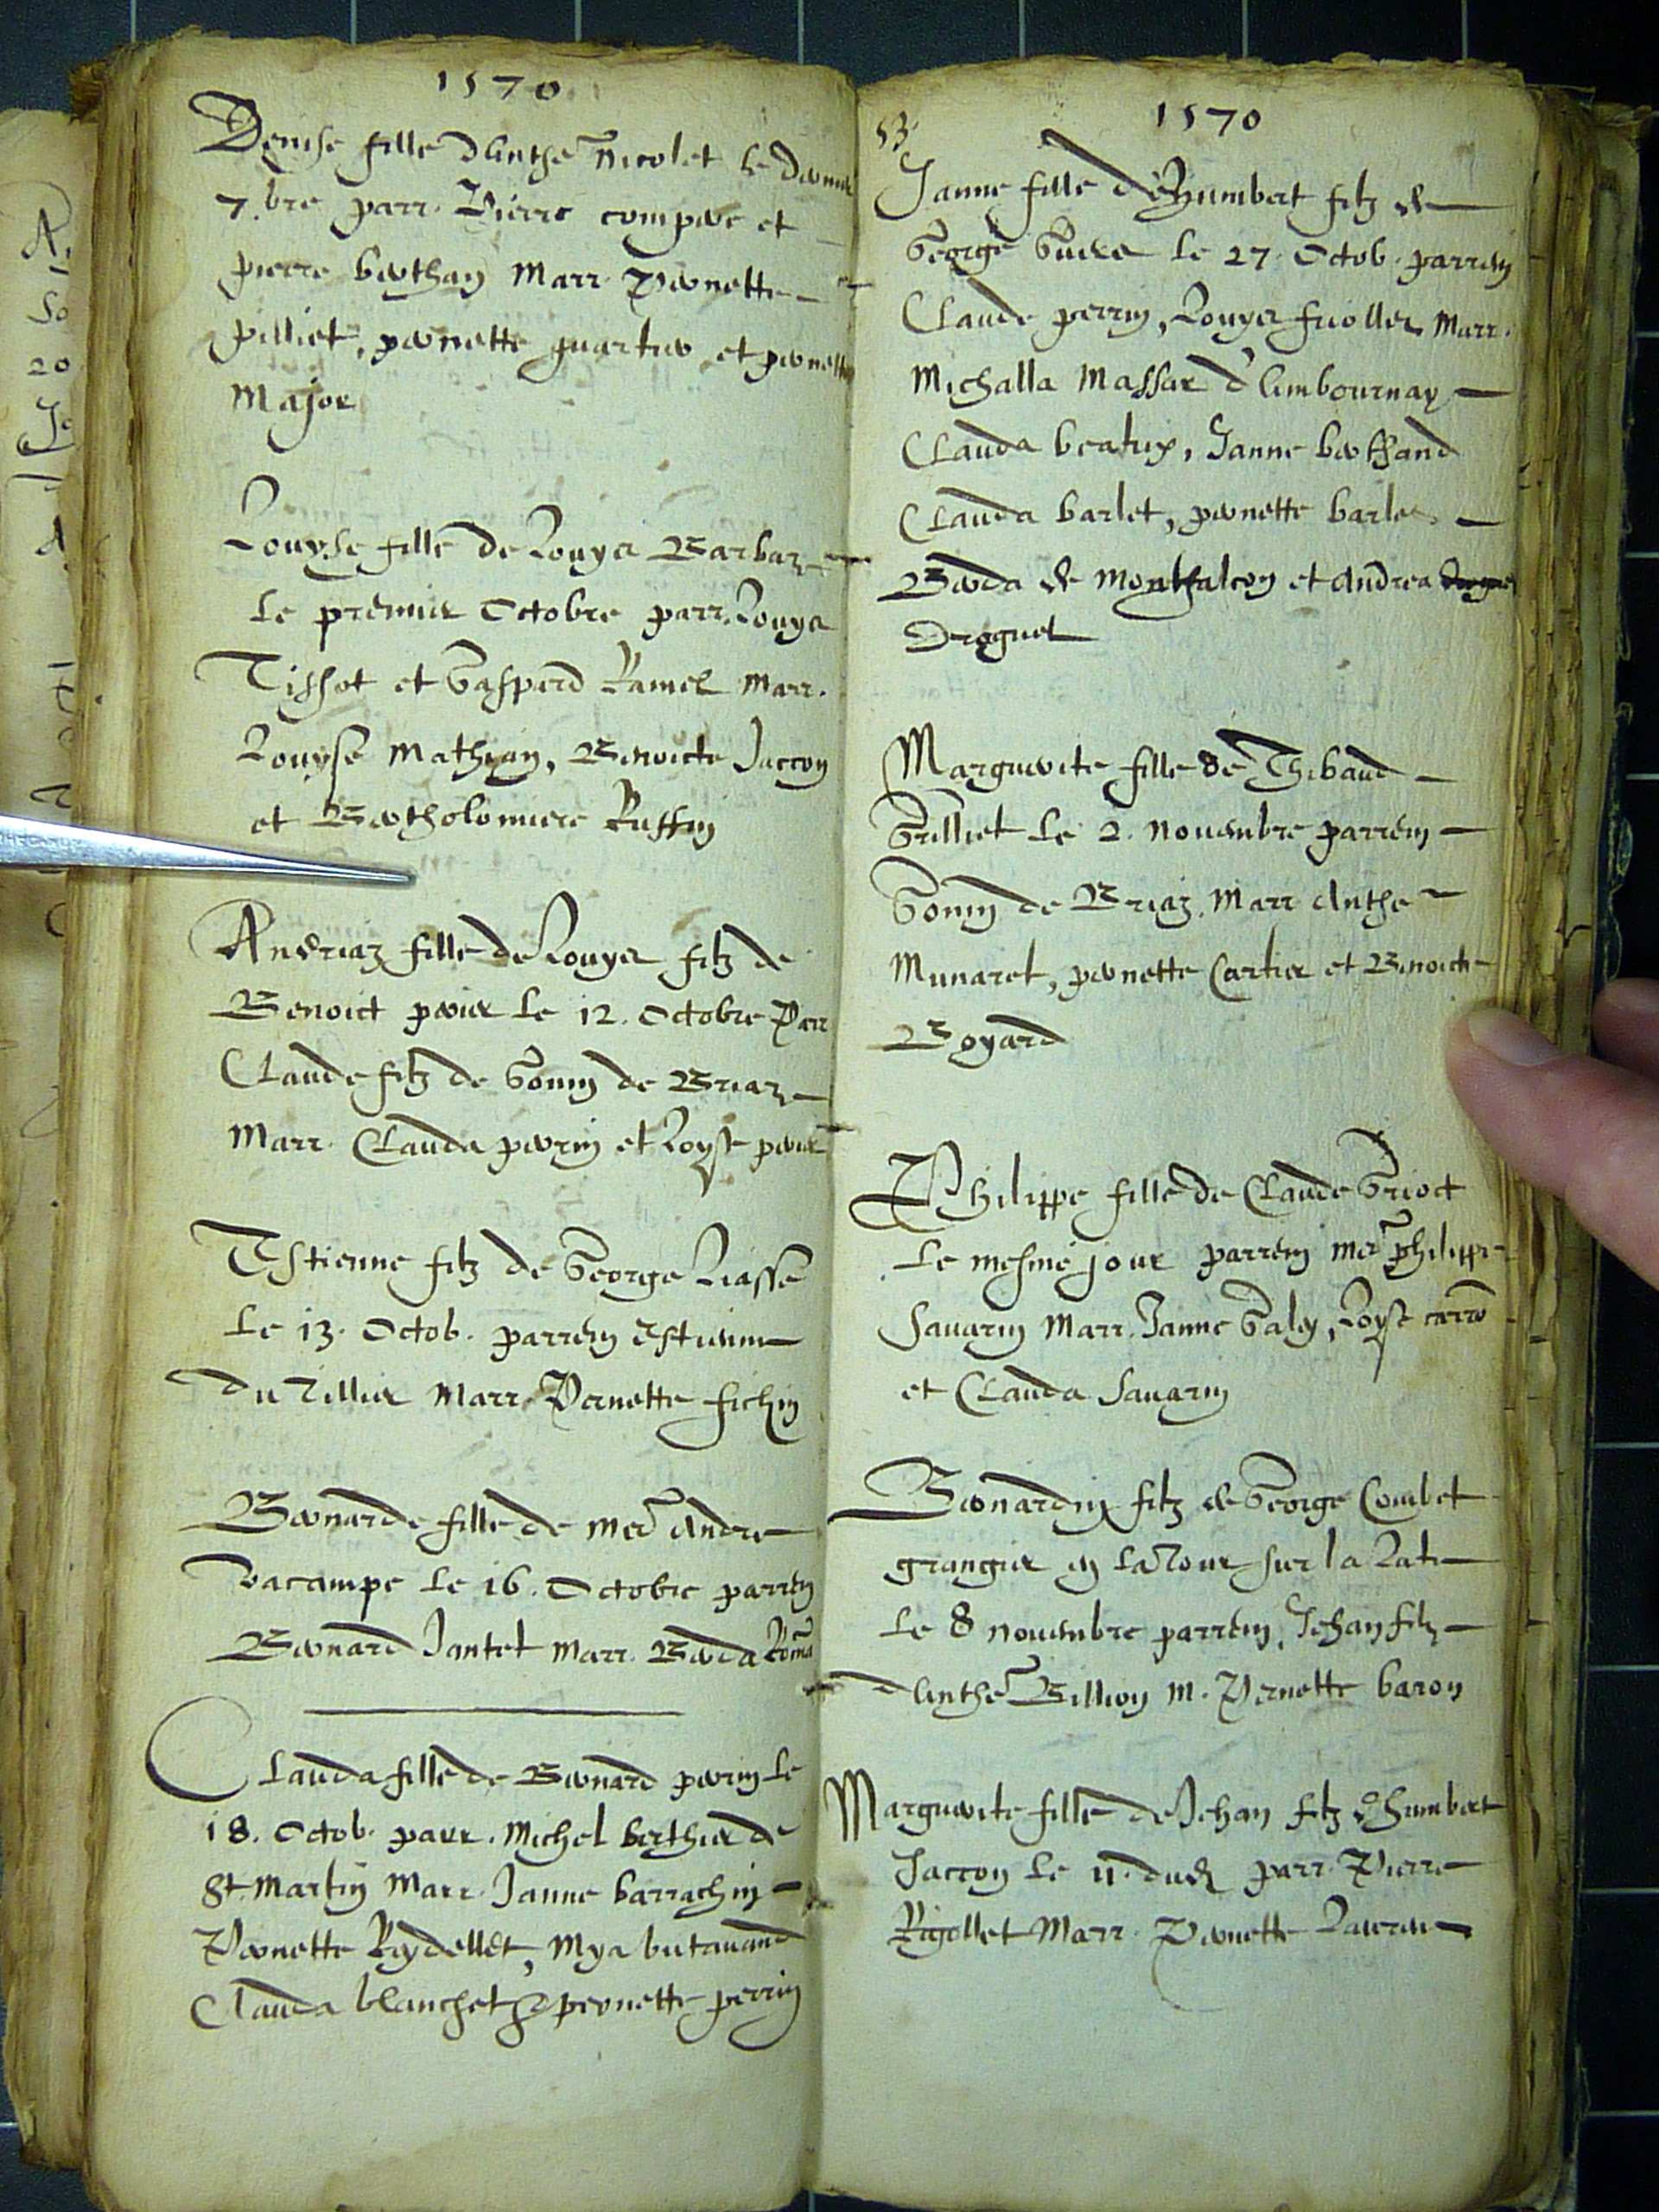 1570
Denise fille d'Anthe Nicolet le dernier
7.bre parr. Pierre compere et
pierre berthan Marr. Pernette
pilliet, pernette quartier et pernette
Major
Louyse fille de Louys Barbaz
le premier Octobre parr. Louys
Tissot et Gasperd Ramel Marr.
Louyse Mathian, Benoicte Jaccon
et Bartholomiere Ruffin
Andriaz fille de Louys filz de
Benoict perier le 12. Octobre Parr
Claude filz de Gonin de Briaz
Marr. Clauda perrin et Loyse perier
Estienne filz de George Liasse
le 13. Octob. parrein Estienne
du Tillier Marr. Pernette fichin
Bernarde fille de Mre Andre
Dacampe le 16. Octobre parrein
Bernard Jantet Marr. Berda
Clauda fille de Bernard perrin le
18. Octob. parr. Michel berthier de
St. Martin Marr. Janne barrachin
Pernette Reydellet, Mya butavand
Clauda blanchet & pernette perrin
53.
1570
Janne fille de Humbert filz de
George le 27. Octob. parrein
Claude perrin, Louys friollet Marr.
Michalla Massar d'Ambournay
Clauda beatrix, Janne berthand
Clauda barlet, pernette barlet
Berda de Montfalcon et Andrea
Droguet
Marguerite fille de Thibaud
Grilliet le 2. Nouembre parrein
Gonin de Briaz. Marr Anthe
Munaret, pernette Cartier et Benoicte
Boyard
Philippe fille de Claude Griot
le mesme jour parrein Mre philippe
Sauarin Marr. Janne Galey, Loyse
et Clauda Sauarin
Bernardin filz de George Combet
grangier en la Tour sur la
le 8 nouembre parrein, Jehan filz
d'Anthe Billion M. Pernette baron
Marguerite fille de Jehan filz d'humbert
Jaccon le 11. dud parr. Pierre
Rigollet Marr. Pernette